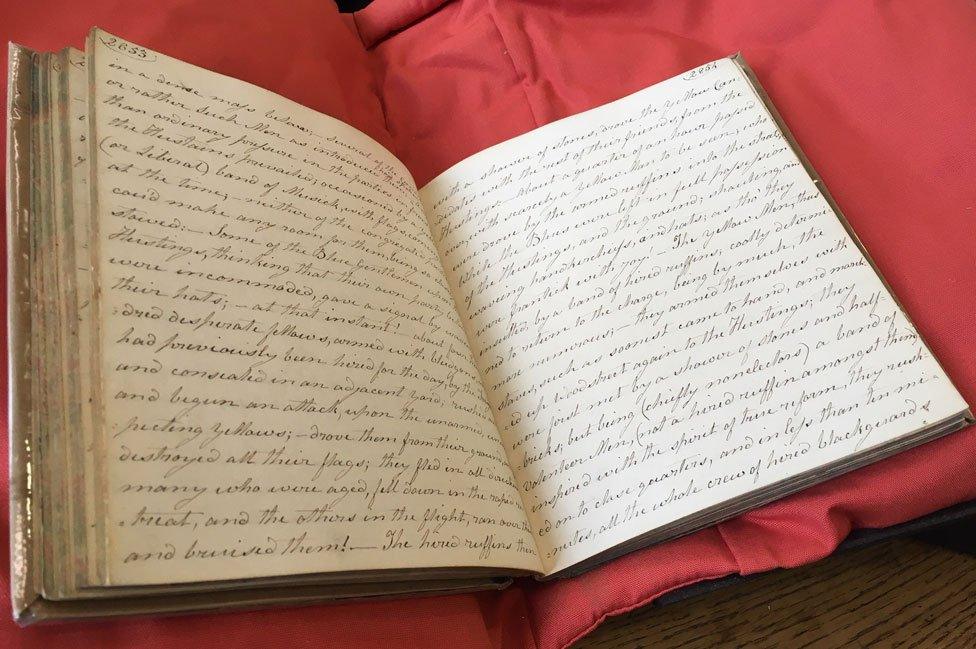 2653
in a dense mass below; several of the
or rather such Men as introduce
than ordinary pressure in the parties
the Hustains prevailed; occasioned by
(or Liberal) band of Musick with flags, com
at the time; — neither of the congregated
cou'd make any room for them, being so
staived: — Some of the Blue Gentlemen
Hustings, thinking that their own party
were incommoded, gave a signal by
their hats; — at that instant! about four
:dred desperate fellows, armed with bludgeons
had previously been hired for the day, by the
and concealed in an adjacent yard, rushed
and begun an attack upon the unarmed, uns
:pecting Yellows; — drove them from their ground
destroyed all their flags; they fled in all directions
many who were aged, fell down in the rapid re
:treat, and the others in the flight, ran over them
and bruised them! — The hired ruffins then
2654
with a shower of stones, drove the Yellow Can
:didates with the rest of their friends, from the
Hustings — about a quarter of an hour passed
over, with scarcely a Yellow Man to be seen; who
were drove by the armed ruffins into the streets,
while the Blues were left in full possession
of the Hustings, and the ground; shouting, and
waving handkerchiefs, and hats; as tho' they
were frantick with joy! — The Yellow Men, thus
insulted by a band of hired ruffins, coolly determi
:ned to return to the charge, being by much, the
more numerous; — they armed themselves with
staves, such as soonest came to hand, and march
:ed up Woodstreet again to the Hustings; they
were first met by a shower of stones and half-
:bricks; but being (chiefly nonelectors) a band of
volunteer Men, (not a hired ruffin amongst them)
inspired with the spirit of true reform, they rush-
:ed on to close quarters, and in less than ten mi
:nutes, all the whole crew of hired blackguards